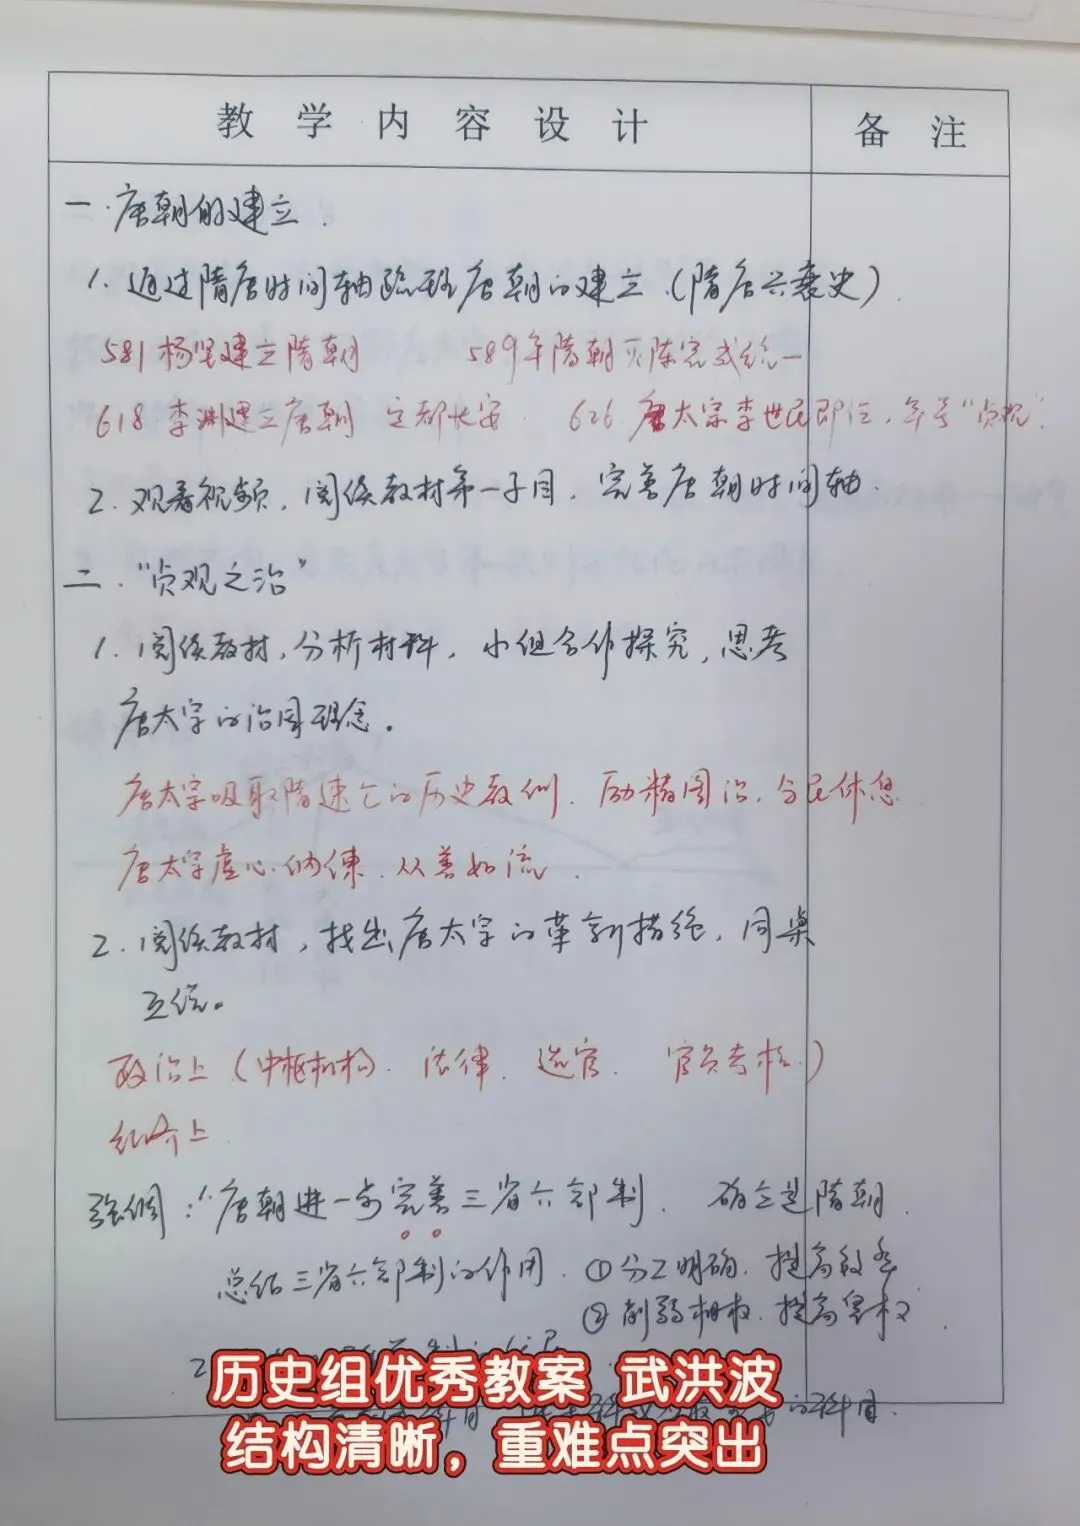 教学内容设计 备注
一. 唐朝的建立.
1. 通过隋唐时间轴疏理唐朝的建立.(隋唐兴衰史).
581 杨坚建立隋朝 589年隋朝灭陈完成统一
618. 李渊建立唐朝 定都长安. 626. 唐太宗李世民即位, 年号"贞观".
2. 观看视频, 阅读教材第一子目, 完善唐朝时间轴.
二. "贞观之治"
1. 阅读教材, 分析材料, 小组合作探究, 思考
唐太宗的治国理念.
唐太宗吸取隋速亡的历史教训. 励精图治. 与民休息
唐太宗虚心纳谏. 从善如流.
2. 阅读教材, 找出唐太宗的革新措施, 同桌
互说.
政治上(中枢机构. 法律. 选官. 官员考核.)
经济上.
强调: 1. 唐朝进一步完善三省六部制. 确立是隋朝.
总结三省六部制的作用. ①分工明确. 提高效率
②削弱相权. 提高皇权.
2.
的科目.
历史组优秀教案 武洪波
结构清晰，重难点突出